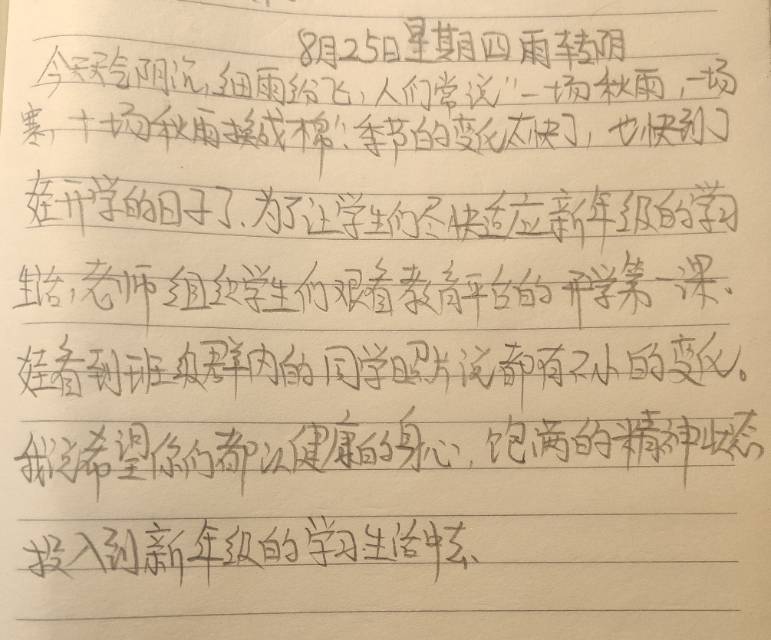 8月25日星期四雨转阴
今天天气阴沉,细雨纷飞,人们常说"一场秋雨,一场
寒,十场秋雨换成棉".季节的变化太快了,也快到了
娃开学的日子了.为了让学生们尽快适应新年级的学习
生活,老师组织学生们观看教育平台的开学第一课.
娃看到班级群内的同学照片说都有不小的变化。
我说希望你们都以健康的身心,饱满的精神状态
投入到新年级的学习生活中去.